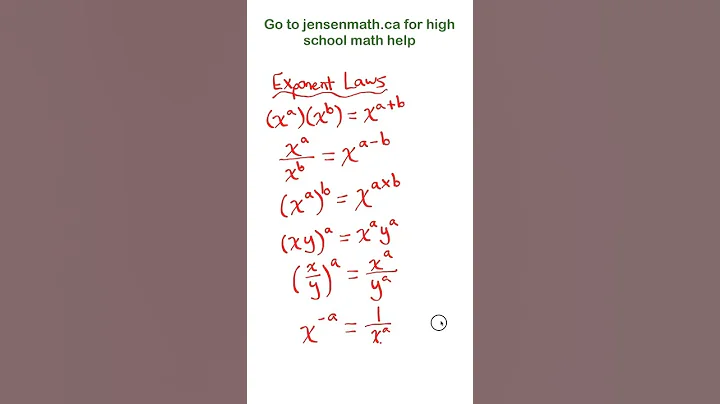 Go to jensenmath.ca for high
school math help
Exponent Laws
(x^a)(x^b) = x^{a+b}
\frac{x^a}{x^b} = x^{a-b}
(x^a)^b = x^{a×b}
(xy)^a = x^a y^a
(\frac{x}{y})^a = \frac{x^a}{y^a}
x^{-a} = \frac{1}{x^a}